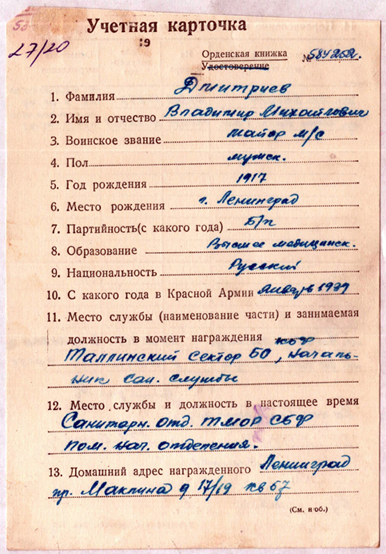 Учетная карточка
19
27/20
Орденская книжка
Удостоверение
№584252
1. Фамилия Дмитриев
2. Имя и отчество Владимир Михайлович
3. Воинское звание майор м/с
4. Пол мужск.
5. Год рождения 1917
6. Место рождения г. Ленинград
7. Партийность(с какого года) Б/п
8. Образование Высшее медицинск.
9. Национальность Русский
10. С какого года в Красной Армии январь 1939
11. Место службы (наименование части) и занимаемая
должность в момент награждения КБФ
Таллинский сектор БО, началь-
ник сан. службы
12. Место службы и должность в настоящее время
Санитарн. отд. ТМОР СБФ
пом. нач. отделения.
13. Домашний адрес награжденного Ленинград
пр. Маклина д 17/19 кв 67
(См. н об.)